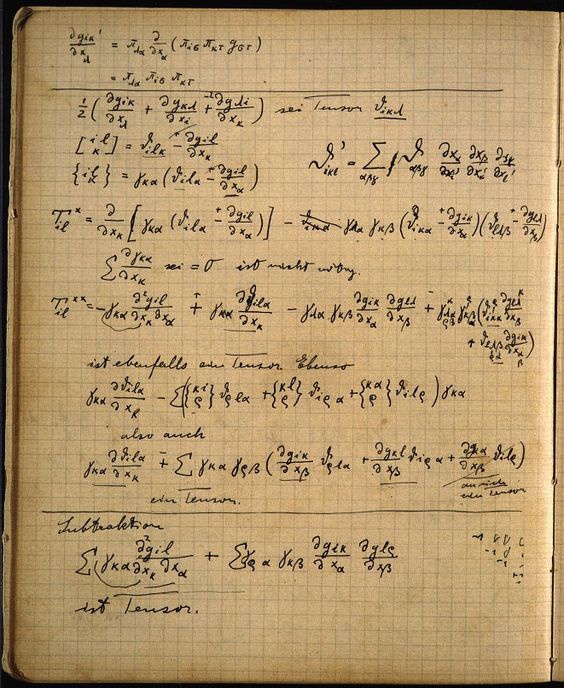 ∂g_{iκ}'/∂x_λ' = π_{λα} ∂/∂x_α (π_{iσ} π_{κτ} g_{στ})
= π_{λα} π_{iσ} π_{κτ}
½(∂g_{iκ}/∂x_λ + ∂g_{κλ}/∂x_i + ∂g_{λi}/∂x_κ) sei Tensor ϑ_{iκλ}
[il κ] = ϑ_{ilκ} − ∂g_{il}/∂x_κ
{il κ} = γ_{κα} (ϑ_{ilα} − ∂g_{il}/∂x_α)
ϑ'_{iκl} = ∑_{αβγ} ϑ_{αβγ} ∂x_α/∂x_i' ∂x_β/∂x_κ' ∂x_γ/∂x_l'
T_{il}^x = ∂/∂x_κ [γ_{κα} (ϑ_{ilα} − ∂g_{il}/∂x_α)] − γ_{λα} γ_{κβ} (ϑ_{iκα} − ∂g_{iκ}/∂x_α)(ϑ_{lλβ} − ∂g_{lλ}/∂x_β)
∑ ∂γ_{κα}/∂x_κ sei = 0 ist nicht nötig.
T_{il}^{xx} = −γ_{κα} ∂²g_{il}/∂x_κ∂x_α + γ_{κα} ∂ϑ_{ilα}/∂x_κ − γ_{λα} γ_{κβ} ∂g_{iκ}/∂x_α ∂g_{lλ}/∂x_β
ist ebenfalls ein Tensor Ebenso
γ_{κα} ∂ϑ_{ilα}/∂x_κ − ∑({κi ρ} ϑ_{ρlα} + {κl ρ} ϑ_{iρα} + {κα ρ} ϑ_{ilρ}) γ_{κα}
also auch
γ_{κα} ∂ϑ_{ilα}/∂x_κ + ∑ γ_{κα} γ_{ρβ} (∂g_{iκ}/∂x_β ϑ_{ρlα} + ∂g_{κl}/∂x_β ϑ_{iρα} + ∂g_{κα}/∂x_β ϑ_{ilρ})
ein Tensor
ein Tensor.
Subtraktion
∑ γ_{κα} ∂²g_{il}/∂x_κ∂x_α + ∑ γ_{ρα} γ_{κβ} ∂g_{iκ}/∂x_α ∂g_{lρ}/∂x_β
ist Tensor.